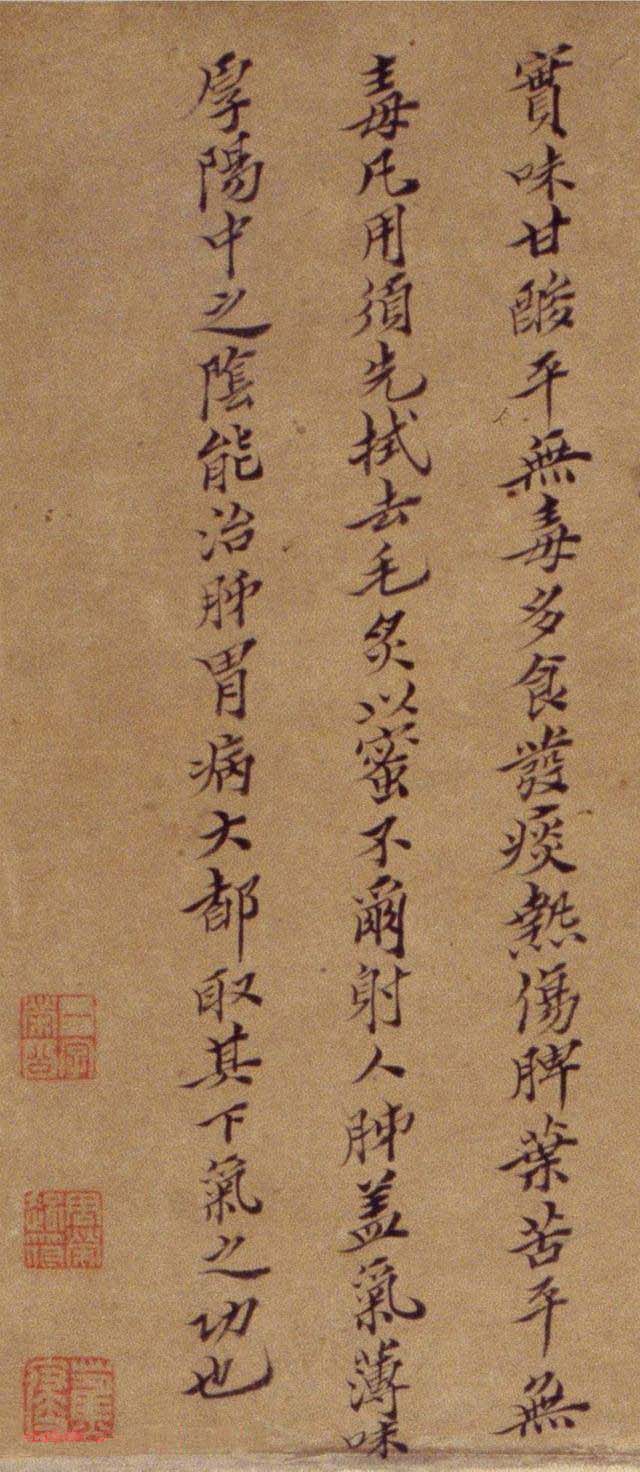 實味甘酸平無毒多食發痰熱傷脾葉苦平無
毒凡用須先拭去毛炙以蜜不爾射人肺盖氣薄味
厚陽中之陰能治肺胃病大都取其下氣之功也